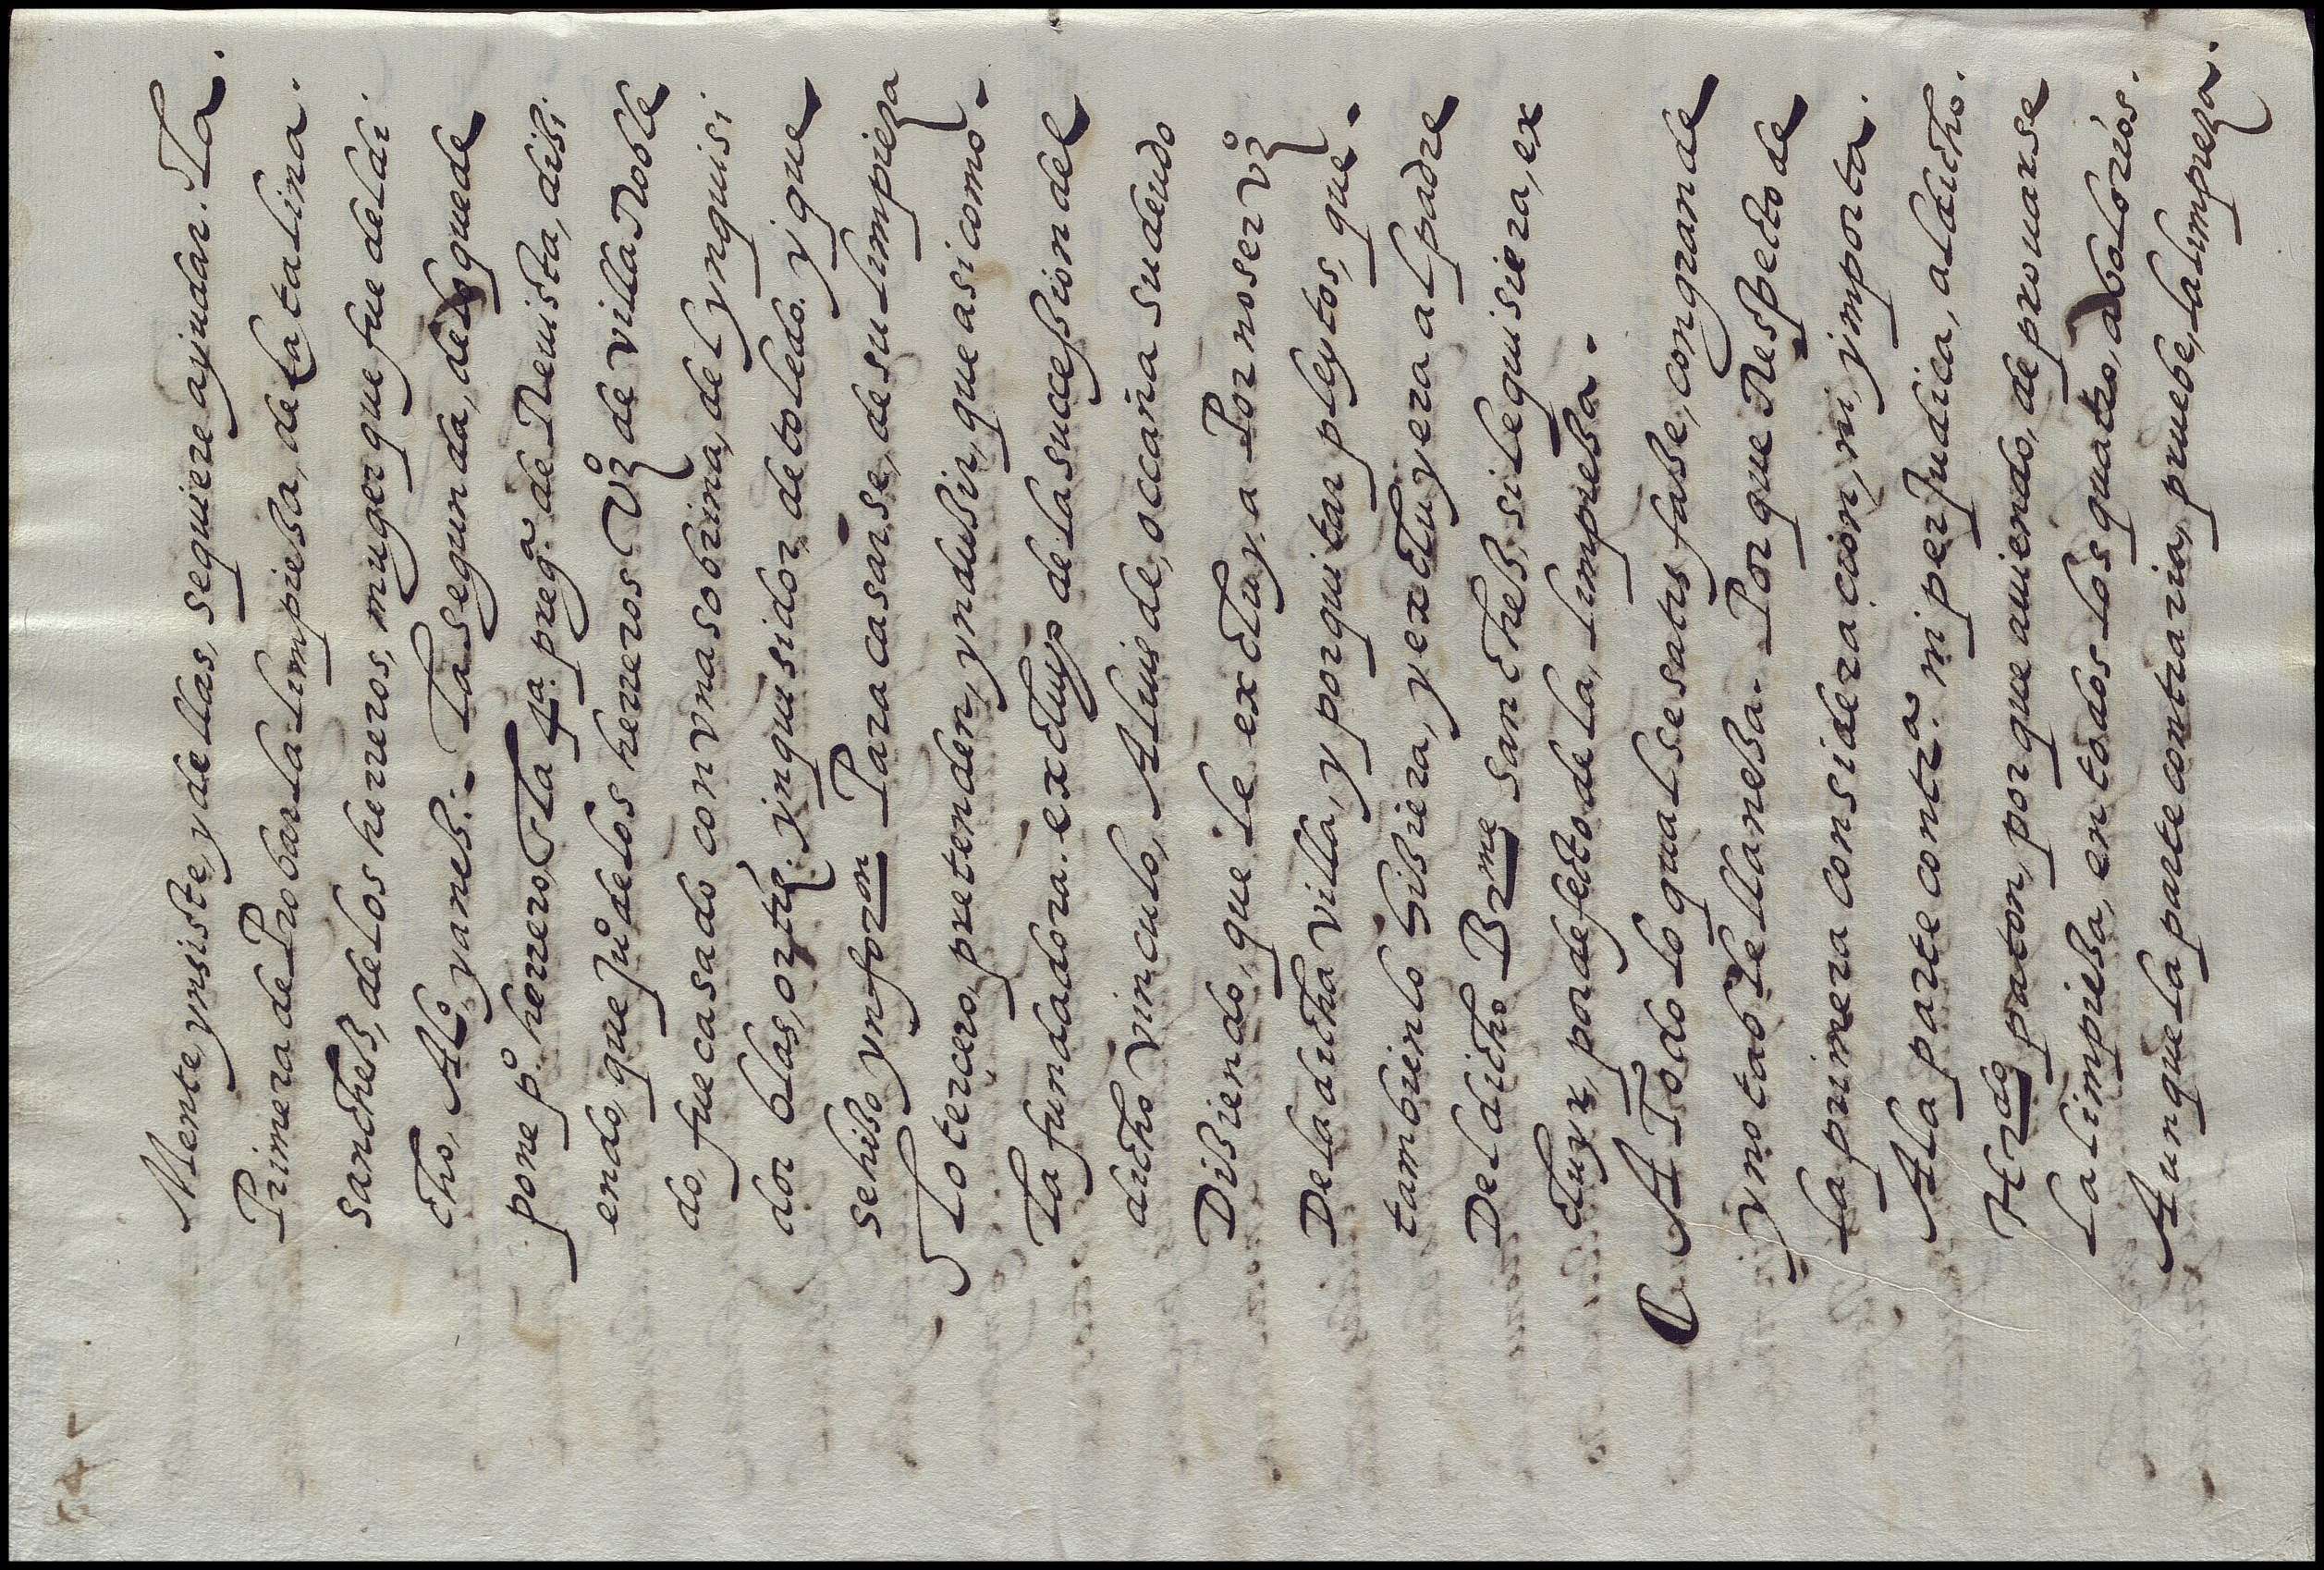 Mente ynsiste, y dellas, se quiere ayudar. La.
Primera de Probar la limpieza, de Catalina.
sanchez, de los herreros, muger que fue del di-
cho, Alº, yanez.- La segunda, de lo que de
pone pº. herrero, La 4ª. pregª. de Reuista, disi.
endo, que Juº de los herreros Vzº de villa Roble
do, fue casado con Vna sobrina, del ynquisi
dor blas, ortiz. ynquisidor, de toledo. y que
se hiso ynforon Para casarse, de su limpieza
Lo tercero, pretenden, yndusir, que asi como-
La fundadora. excluyo de la succession del
dicho Vinculo, A luis de, occaña su deudo
Disiendo, que le excluya Por no ser Vzº
De la dicha Villa, y por quitar pleytos, que.
tambien lo hisiera, y excluyera al padre
Del dicho Brme sanchez, si le quisiera, ex
cluyr, por defecto de la, limpieza.
A Todo lo qual se satisfasse, con grande
y notable llaneza. Porque Respecto de
la primera consideracion, ni, ymporta.
A la parte contrª. ni perJudica, al dicho.
Hrdo paton, porque auiendo, de prouarse
La limpieza, en todos los quatro, abolorios.
Aunque la parte contraria, pruebe, la limpieza.